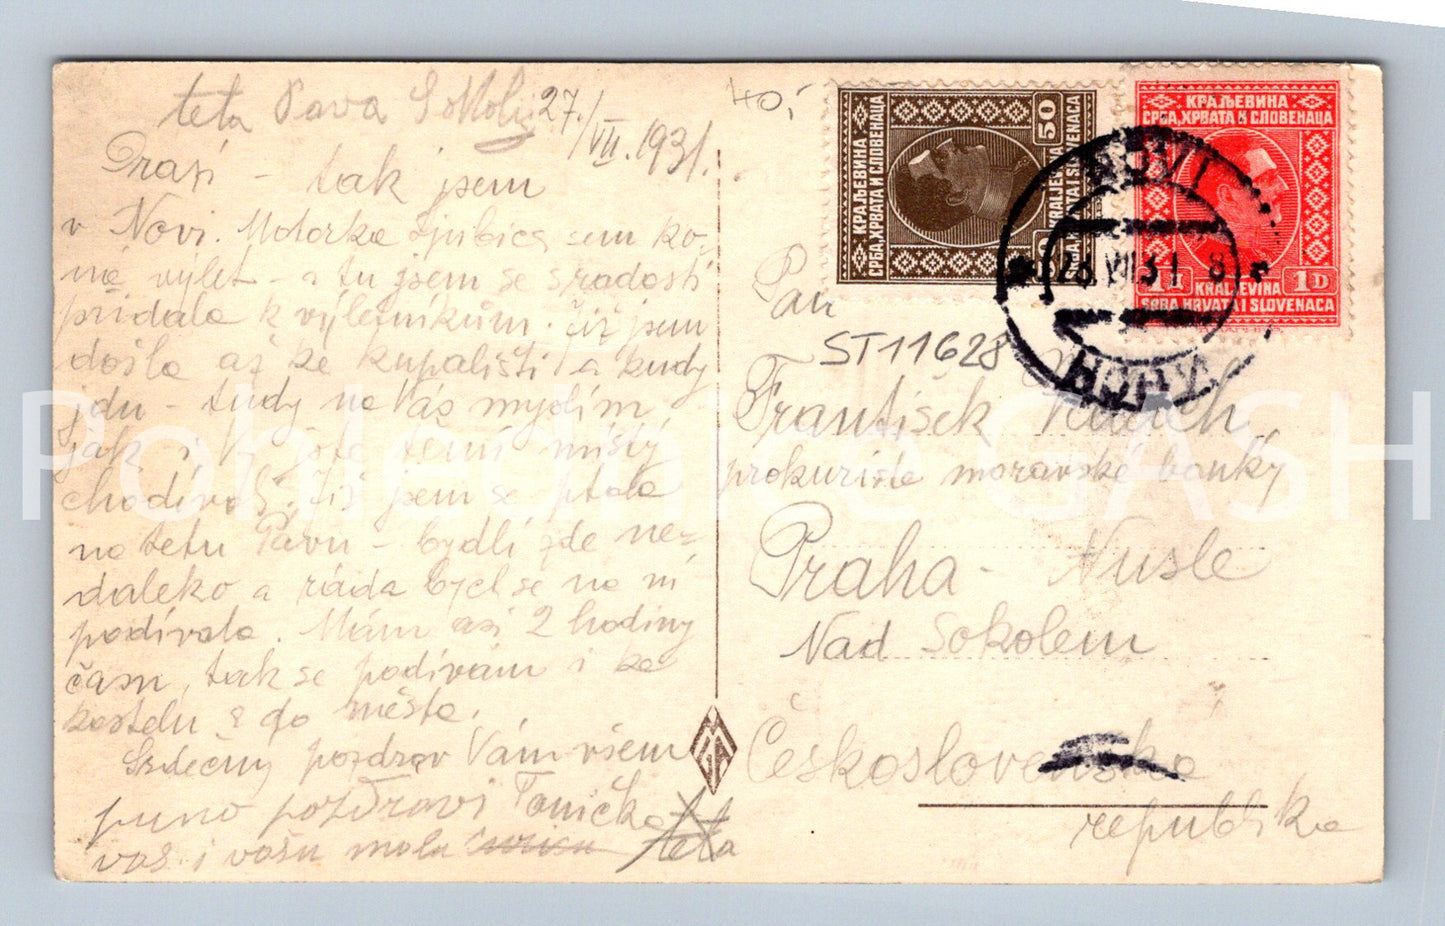 teta Pava Sokoly
27/VII.1931.
Drazí - tak jsem
v Novi. Motorka Ljubica sem ko-
ná výlet - a tu jsem se s radostí
přidala k výletníkům. Již jsem
došla až ke kupališti a kudy
jdu - tudy na Vás myslím,
jak i Vy jste těmi místy
chodívali. Již jsem se ptala
na tetu Pavu - bydlí zde ne-
daleko a ráda bych se na ni
podívala. Mám asi 2 hodiny
času, tak se podívám i ke
kostelu & do města.
Srdečný pozdrav Vám všem
Tonička
puno pozdravi
vas i vašu malu
teta
40,-
КРАЉЕВИНА
СРБА, ХРВАТА И СЛОВЕНАЦА
50
KRALJEVINA
SRBA, HRVATA I SLOVENACA
КРАЉЕВИНА
СРБА, ХРВАТА И СЛОВЕНАЦА
1D
KRALJEVINA
SRBA HRVATA I SLOVENACA
NOVI
28 VII 31 8
НОВИ
Pan
ST11628
František
prokurista moravské banky
Praha - Nusle
Nad Sokolem
Československá
republika
Pohlednice GASH